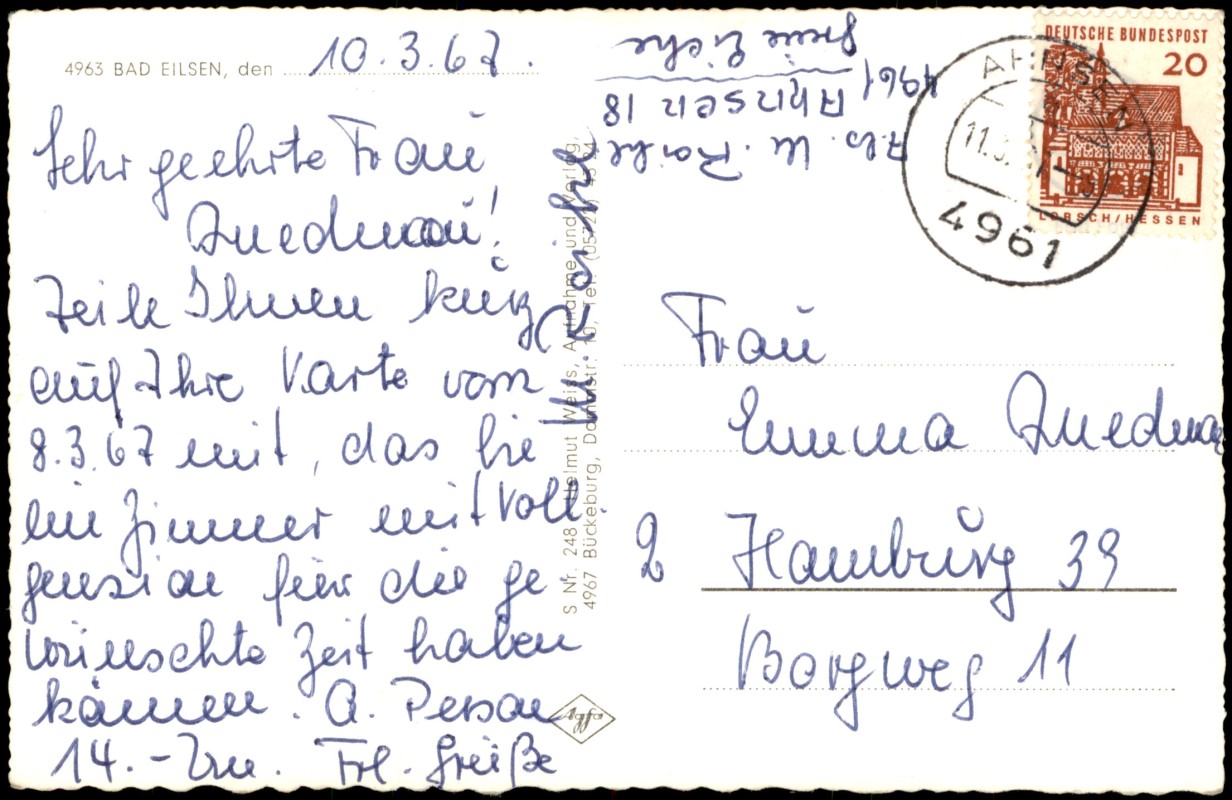 4963 BAD EILSEN, den 10.3.67.
Sehr geehrte Frau
Quednau!
Teile Ihnen kurz
auf Ihre Karte vom
8.3.67 mit, das Sie
ein Zimmer mit Voll
pension für die ge
wünschte Zeit haben
können. A. Person
14.- DM. Frl. Grüße
S Nr. 248 Helmut Weiss, Aufnahme und Verlag
4967 Bückeburg, Tel. (05722)
Agfa
Abs. W.
4961 Ahnsen 18
grüne Eiche
AHNSEN
11.3.
4961
DEUTSCHE BUNDESPOST
20
LORSCH/HESSEN
Frau
Emma Quednau
2 Hamburg 39
Borgweg 11